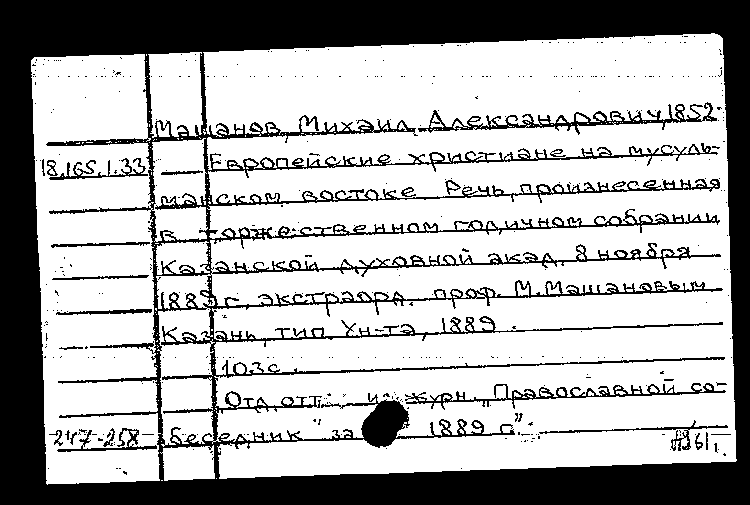 Машанов, Михаил Александрович, 1852-
18.165.1.33 Европейские христиане на мусуль-
манском востоке Речь, произнесенная
в торжественном годичном собрании
Казанской духовной акад. 8 ноября
1889 г. экстраорд. проф. М. Машановым
Казань, тип. Ун-та, 1889.
103 с.
Отд. отт. из журн. „Православной со-
247-258 беседник" за 1889 г".